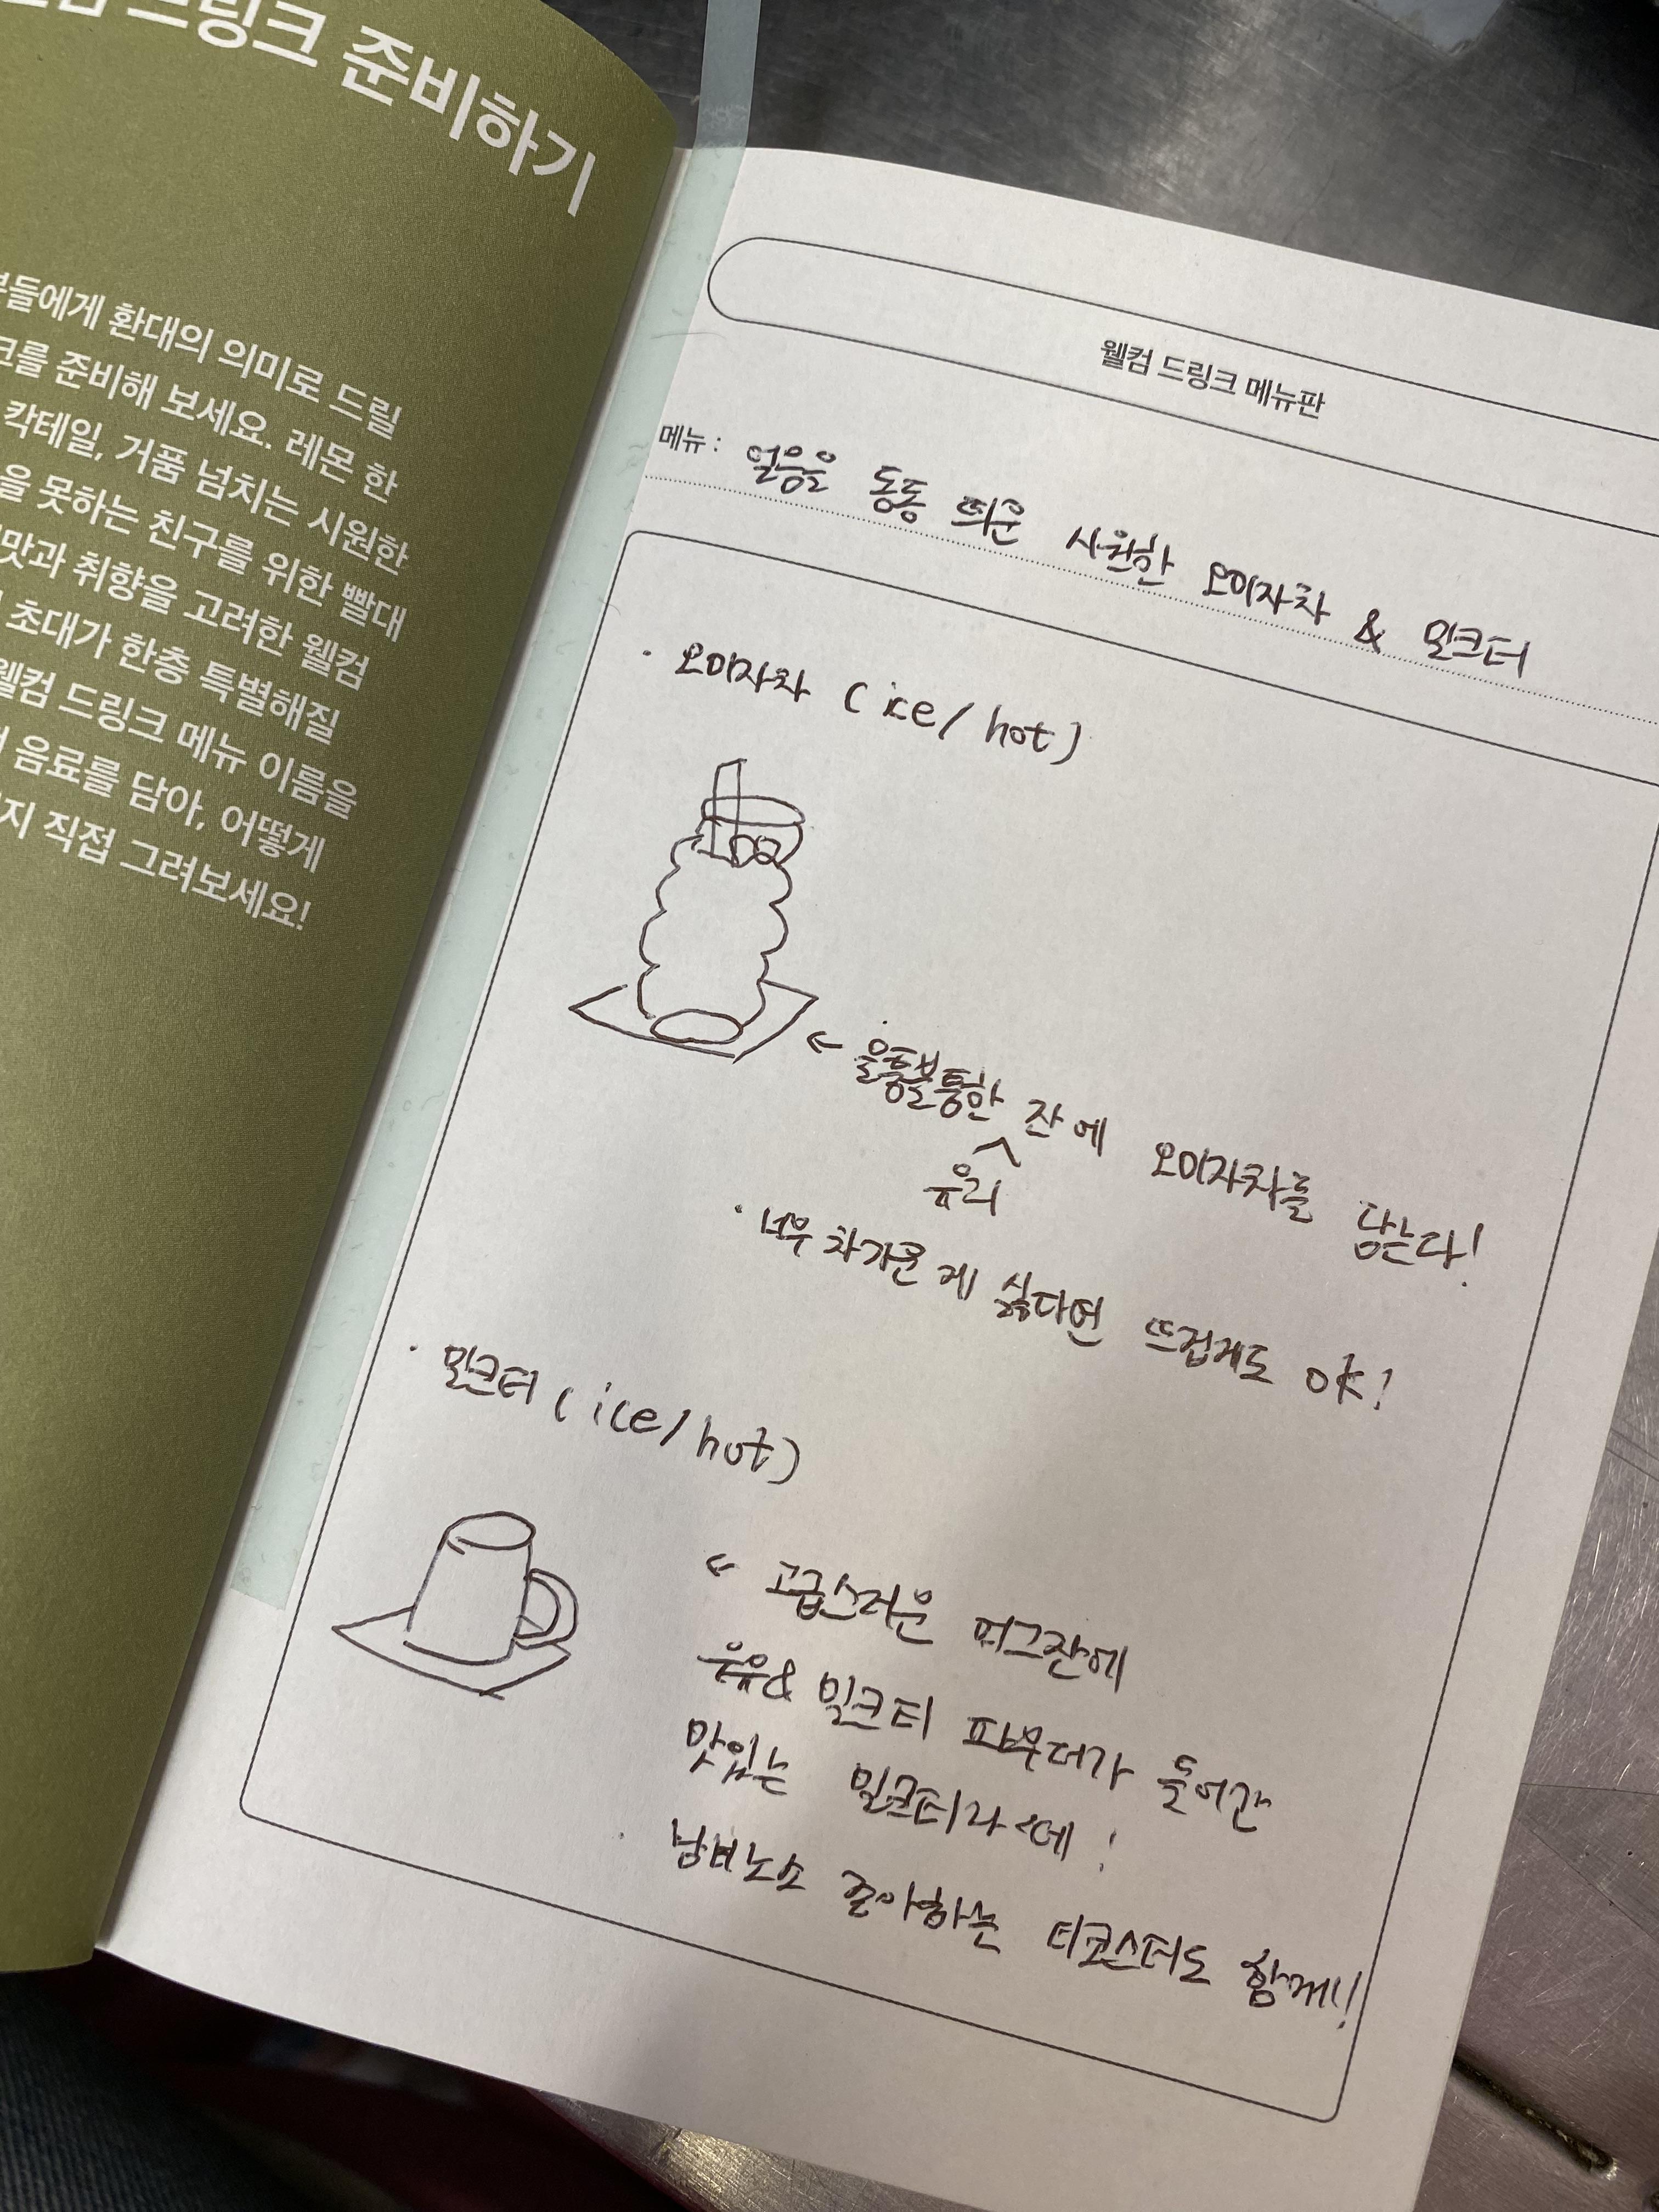 드링크 준비하기
들에게 환대의 의미로 드릴
를 준비해 보세요. 레몬 한
칵테일, 거품 넘치는 시원한
을 못하는 친구를 위한 빨대
맛과 취향을 고려한 웰컴
초대가 한층 특별해질
웰컴 드링크 메뉴 이름을
음료를 담아, 어떻게
지 직접 그려보세요!
웰컴 드링크 메뉴판
메뉴 : 얼음을 동동 띄운 시원한 오미자차 & 밀크티
· 오미자차 (ice/hot)
← 울퉁불퉁한 잔에 오미자차를 담는다!
^
유리
· 너무 차가운 게 싫다면 뜨겁게도 OK!
· 밀크티 (ice/hot)
← 고급스러운 머그잔에
우유& 밀크티 파우더가 들어간
맛있는 밀크티라떼!
· 남녀노소 좋아하는 티코스터도 함께!!